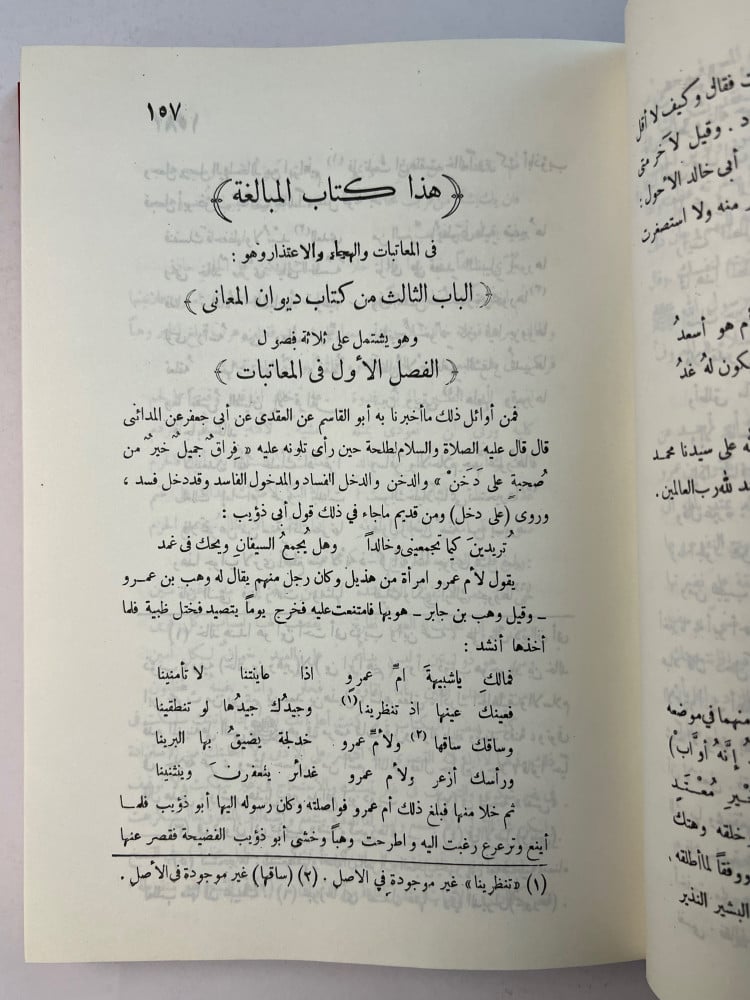 ١٥٧
﴿ هذا كتاب المبالغة ﴾
فى المعاتبات والهجاء والاعتذار وهو :
﴿ الباب الثالث من كتاب ديوان المعانى ﴾
وهو يشتمل على ثلاثة فصول
﴿ الفصل الأول فى المعاتبات ﴾
فمن أوائل ذلك ما أخبرنا به أبو القاسم عن العقدى عن أبى جعفر عن المدائنى
قال قال عليه الصلاة والسلام لطلحة حين رأى تلونه عليه « فِراقٌ جميلٌ خيرٌ من
صُحبةٍ على دَخَنْ » والدخن والدخل الفساد والمدخول الفاسد وقد دخل فسد ،
وروى (على دخل) ومن قديم ماجاء في ذلك قول أبى ذؤيب :
تُريدينَ كيما تجمعينى وخالداً وهل يُجمعُ السيفانِ ويحك فى غمد
يقول لأم عمرو امرأة من هذيل وكان رجل منهم يقال له وهب بن عمرو
ـ وقيل وهب بن جابر ـ هويها فامتنعت عليه فخرج يوماً يتصيد فختل ظبية فلما
أخذها أنشد :
فمالكِ ياشبيهةَ امِّ عمرو اذا عاينتنا لا تأمنينا
فعينك عينها اذ تنظرينا (١) وجيدُك جيدُها لو تنطقينا
وساقك ساقها (٢) ولأمِّ عمرو خدلجة يضيقُ بها البرينا
ورأسك أزعر ولأم عمرو غدائر يتعفرنَ وينثنينا
ثم خلا منها فبلغ ذلك أم عمرو فواصلته وكان رسوله اليها أبو ذؤيب فلما
أينع وترعرع رغبت اليه واطرحت وهباً وخشى أبو ذؤيب الفضيحة فقصر عنها
(١) «تنظرينا» غير موجودة في الاصل . (٢) (ساقها) غير موجودة فى الأصل .
ت فقال وكيف لا أقل
د . وقيل لآخر متى
أبى خالد الأحول :
ر منه ولا استصغرت
أم هو أسعدُ
كون لهُ غدُ
لله على سيدنا محمد
د لله رب العالمين .
منهما فى موضعه
إِنَّهُ أوَّاب )
مُعْتَدٍ
خلقه وهتك
ووفقاً لما أطلقه .
البشير النذير